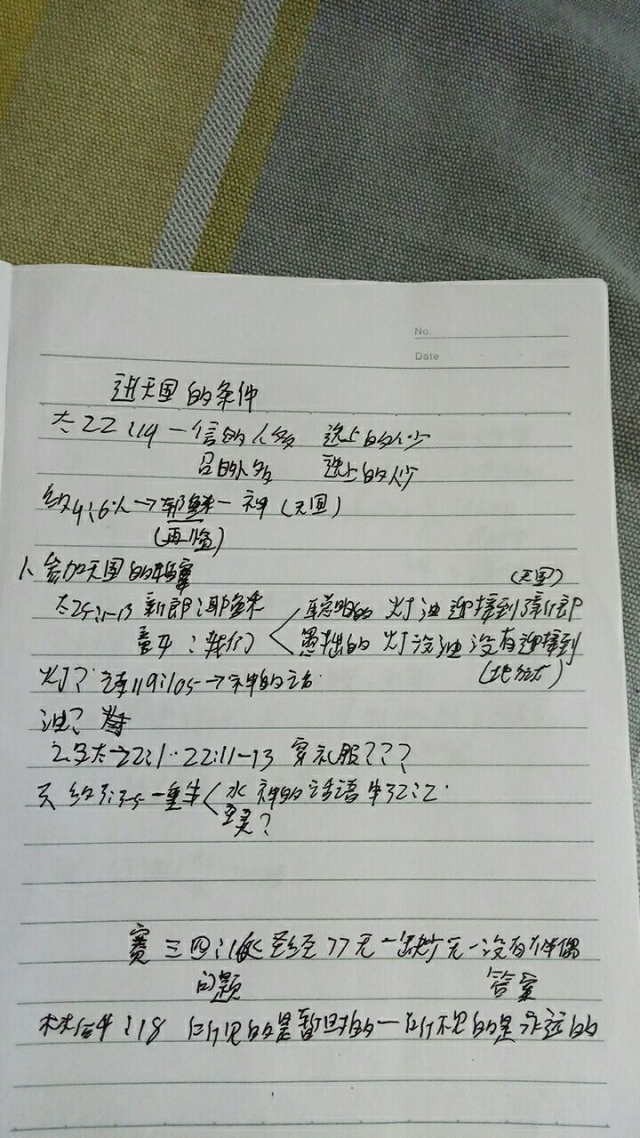 No.
Date
进天国的条件
太22:14 — 信的人多 选上的人少
召的人多 选上的人少
约14:6人→耶稣—神(天国)
(再临)
1、参加天国的
(天国)
太25:1-13 新郎:耶稣 聪明的 灯油 迎接到新郎
童女:我们 愚拙的 灯没油没有迎接到
灯?诗119:105→神的话
油?
2、太22:1 22:11-13 穿礼服???
3、约3:3-5 —重生 水 神的话语
圣灵?
赛三四:16 圣经 没有伴偶
问题 答案
林后4:18 所见的是暂时的—所不见的是永远的